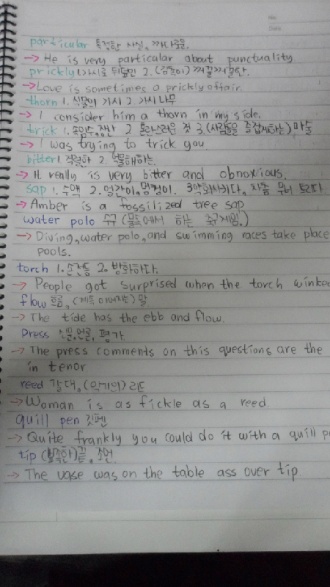 particular 특정한 사실, 까다로운
→ He is very particular about punctuality
prickly 1. 가시로 뒤덮인 2. (감촉이) 따끔따끔한
→ Love is sometimes a prickly affair.
thorn 1. 식물의 가시 2. 가시나무
→ I consider him a thorn in my side.
trick 1. 2. 3. (사람들을 즐겁게하는) 마술
→ I was trying to trick you
bitter 1.
→ H really is very bitter and obnoxious.
sap 1. 수액 2. 얼간이, 멍청이. 3
→ Amber is a fossilized tree sap
water polo 수구 (물에서 하는 )
→ Diving, water polo, and swimming races take place
pools.
torch 1. 손전등 2. 방화하다.
→ People got surprised when the torch winked
flow 흐름,
→ The tide has the ebb and flow.
press 신문, 언론, 평가
→ The press comments on this questions are the
in tenor
reed 갈대, (악기의) 리드
→ Woman is as fickle as a reed
quill pen 깃펜
→ Quite frankly you could do it with a quill p
tip (뾰족한) 끝.
→ The vase was on the table ass over tip